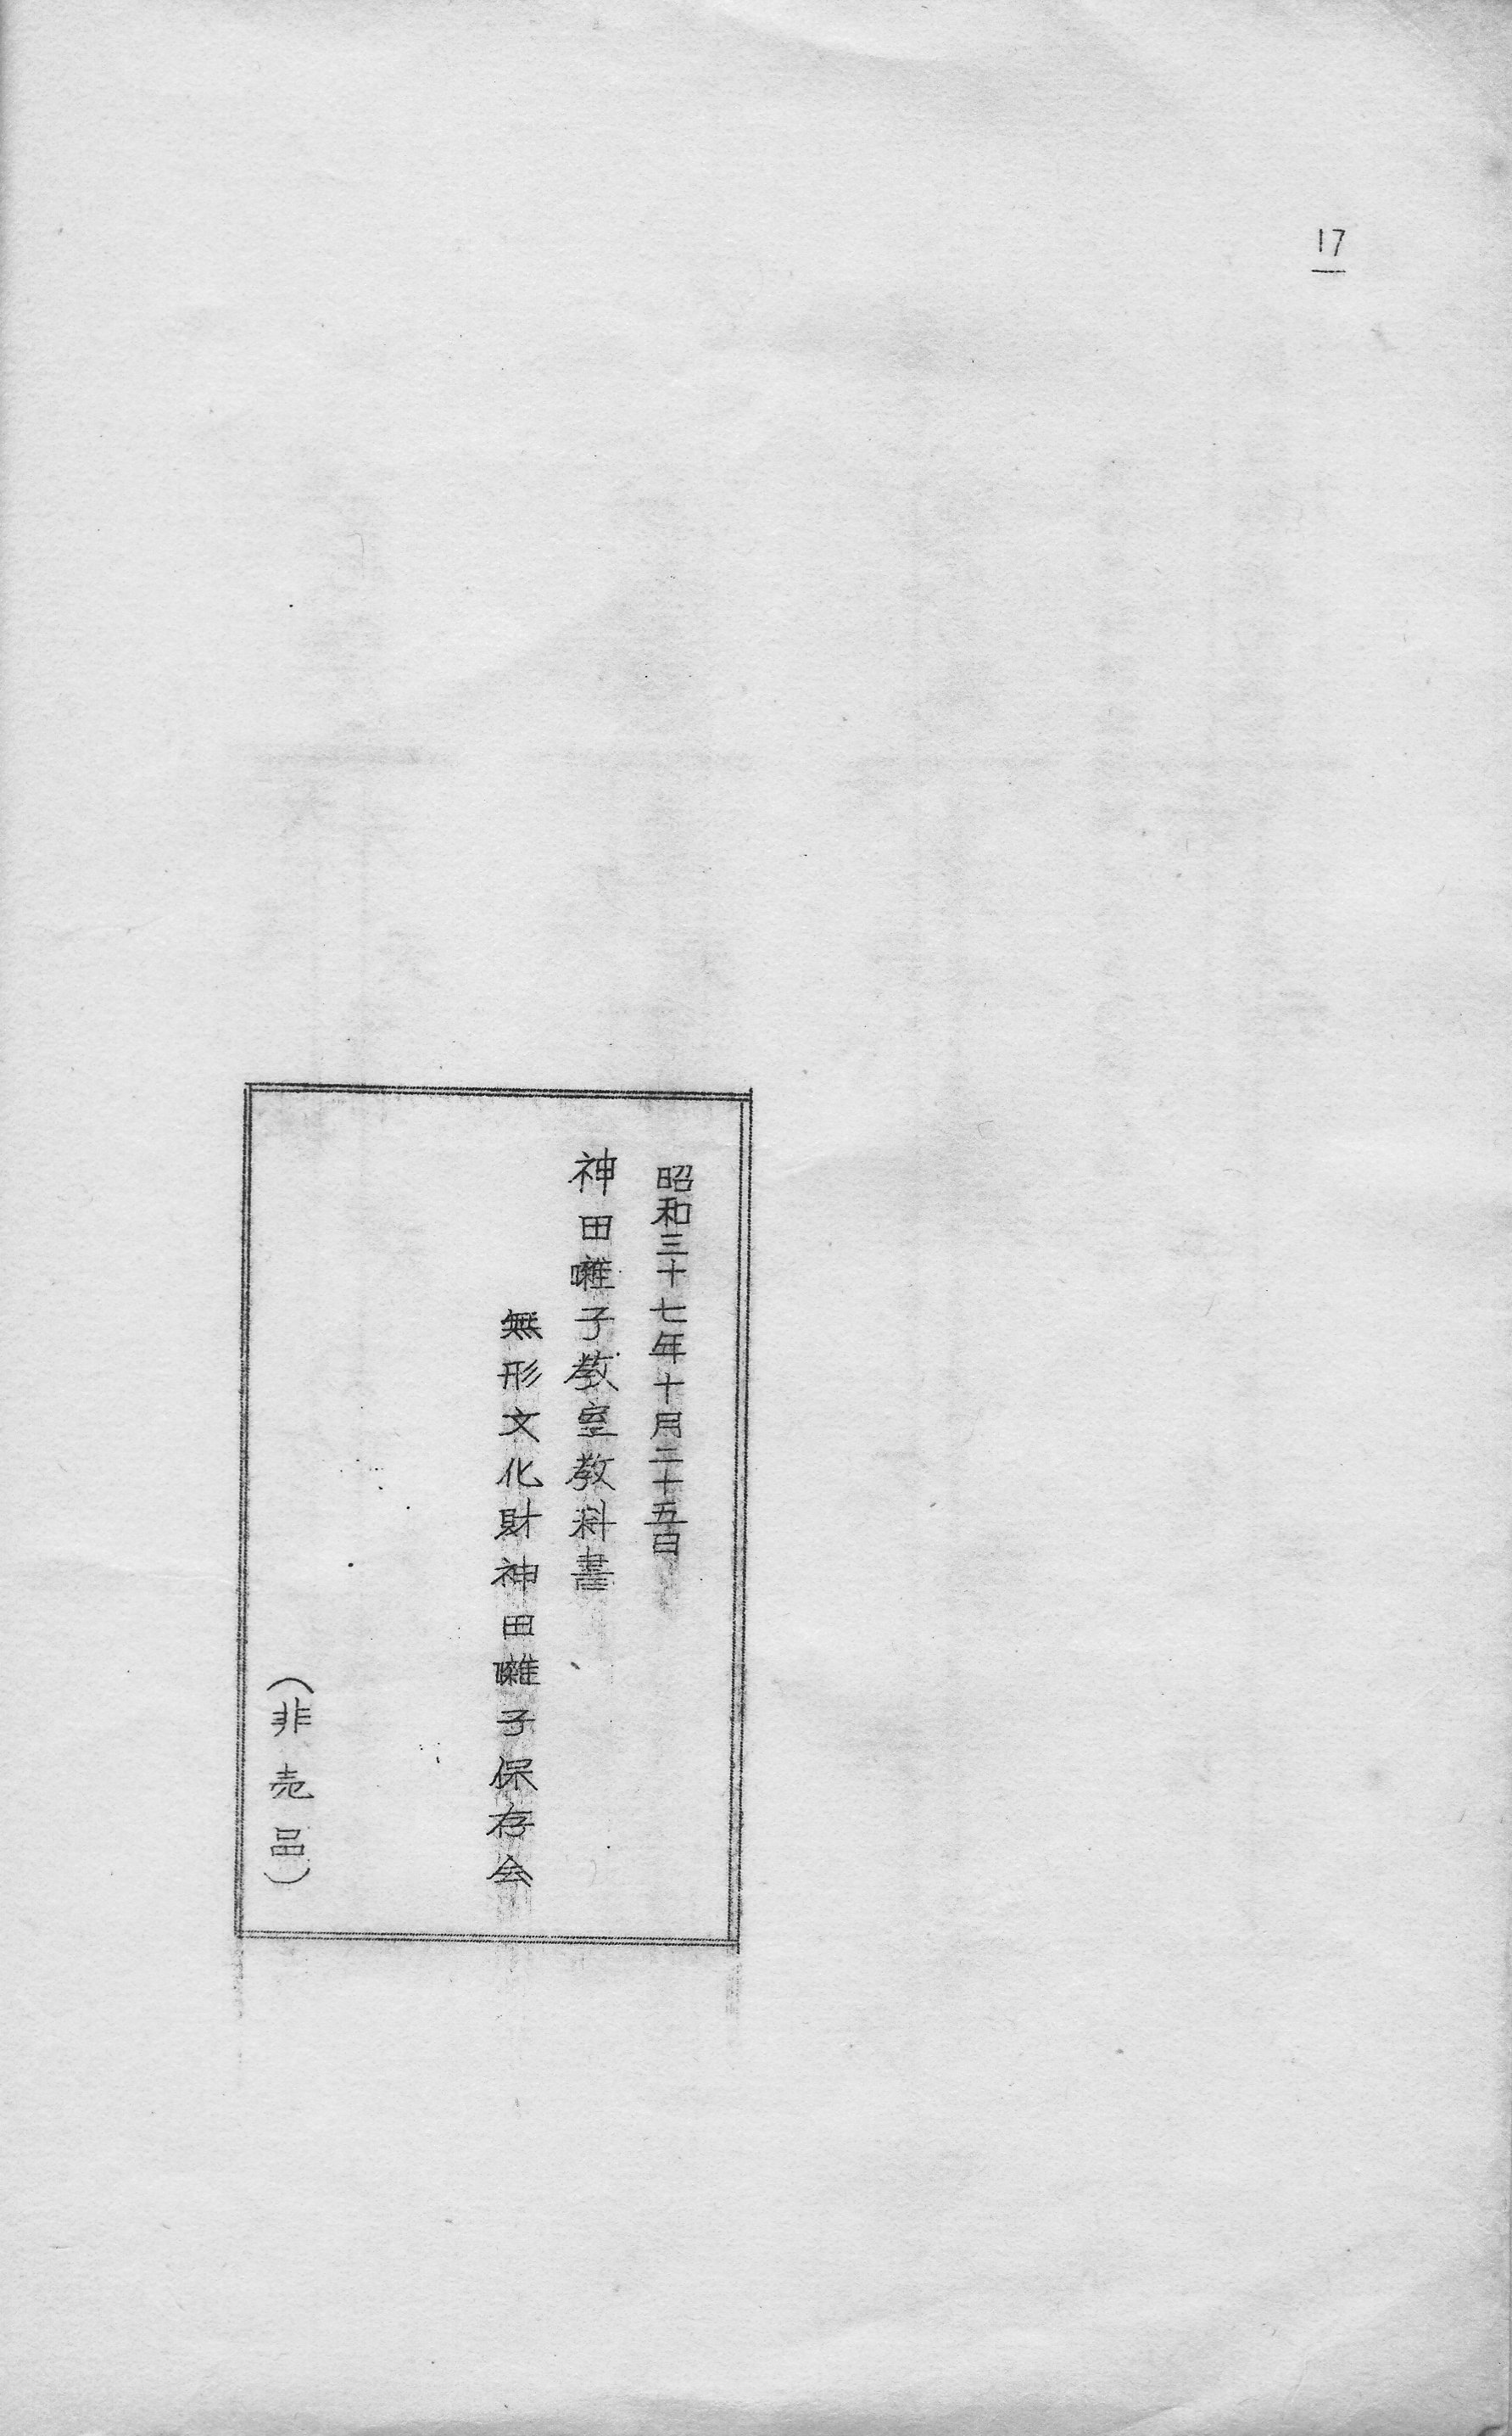 17
昭和三十七年十月二十五日
神田囃子教室教科書
無形文化財神田囃子保存会
(非売品)